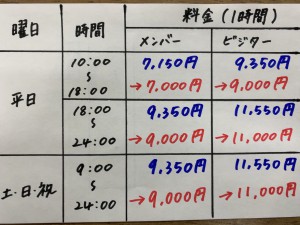 曜日 時間 料金(1時間)
メンバー ビジター
平日 10:00 〜 18:00 7,150円 9,350円
→7,000円 →9,000円
18:00 〜 24:00 9,350円 11,550円
→9,000円 →11,000円
土・日・祝 9:00 〜 24:00 9,350円 11,550円
→9,000円 →11,000円